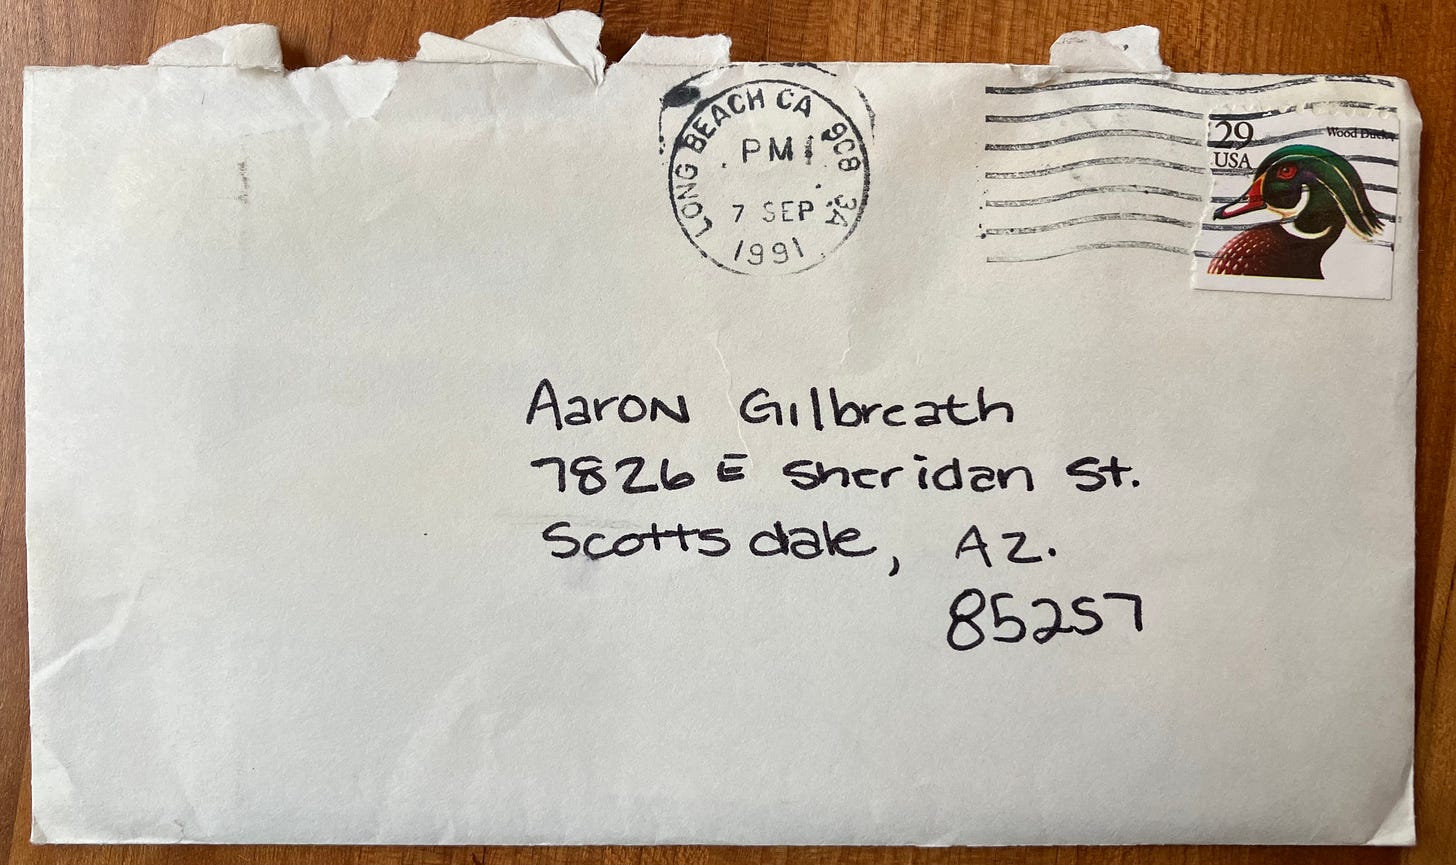 LONG BEACH CA 908
PM
7 SEP
1991
29
USA
Wood Duck
Aaron Gilbreath
7826 E Sheridan St.
Scottsdale, AZ.
85257